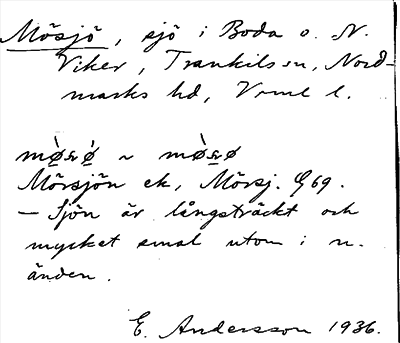 Mösjö, sjö i Boda o. N.
Viker, Trankils sn, Nord-
marks hd, Vrml l.
mø̀ʂǿ ~ mø̀ʂø
Mörsjön ek, Mörsj. G 69.
— Sjön är långsträckt och
mycket smal utom i n.
änden.
E. Andersson 1936.